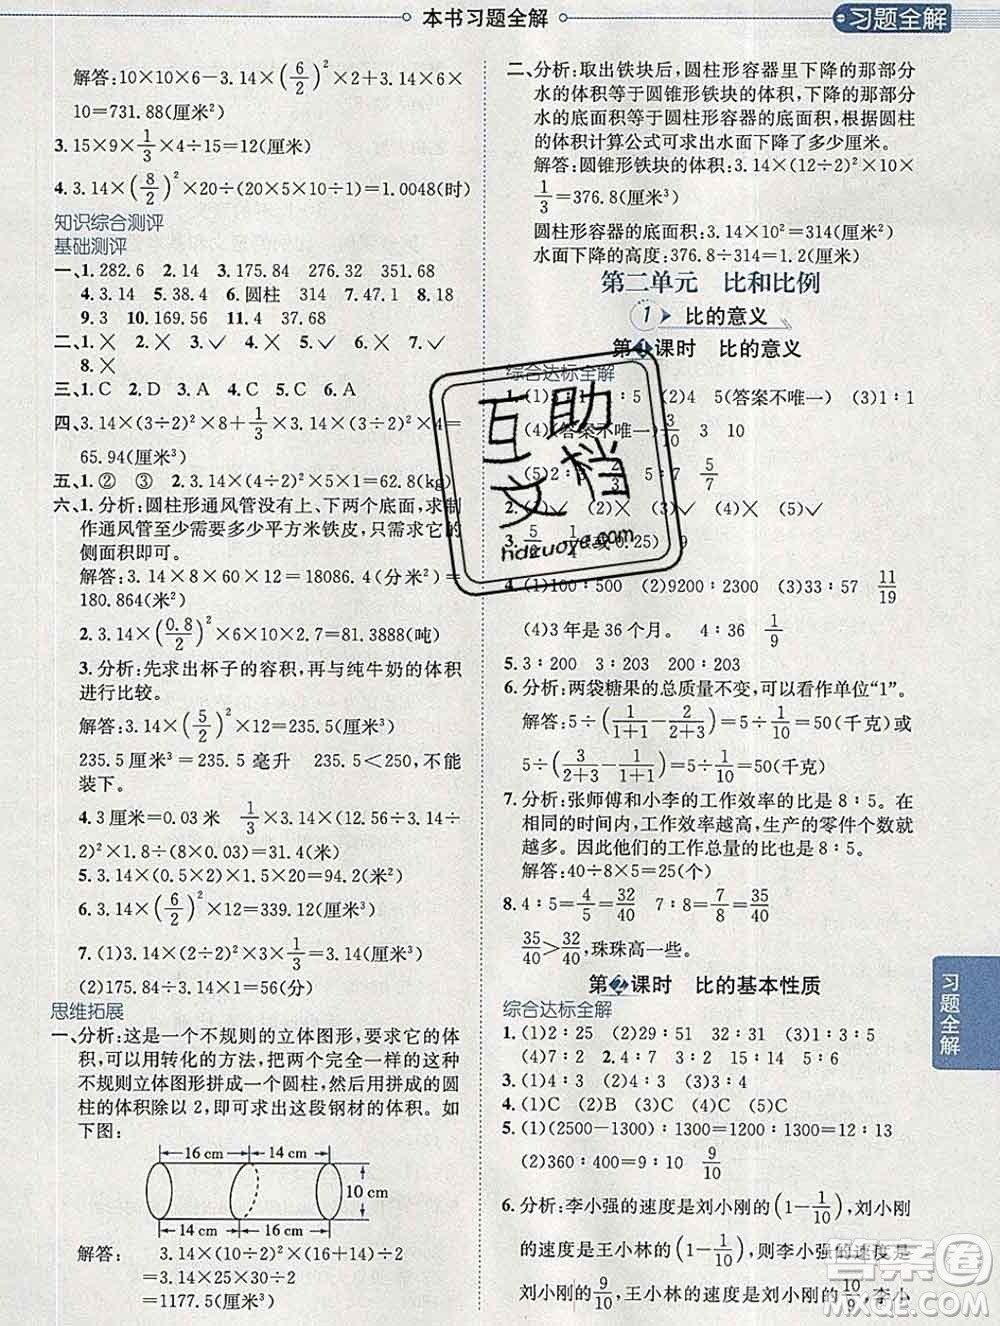 本书习题全解
习题全解
解答:10×10×6-3.14×(6/2)²×2+3.14×6×
10=731.88(厘米²)
3.15×9×1/3×4÷15=12(厘米)
4.3.14×(8/2)²×20÷(20×5×10×1)=1.0048(时)
知识综合测评
基础测评
一、1.282.6 2.14 3.175.84 276.32 351.68
4.3.14 5.138.4 6.圆柱 314 7.18 8.27
9.3 10.169.56 11.4 37.68
二、1.× 2.× 3.× 4.× 5.√ 6.× 7.√
8.×
三、1.C 2.D 3.A 4.C 5.A 6.C
四、3.14×(3÷2)²×8+1/3×3.14×(3÷2)²×4=
65.94(厘米³)
五、1.② ③ 2.3.14×(4÷2)²×5×1=62.8(kg)
六、1.分析:圆柱形通风管没有上、下两个底面,求制
作通风管至少需要多少平方米铁皮,只需求它的
侧面积即可。
解答:3.14×3.2×15×120=18086.4(分米²)=
180.864(米²)
2.3.14×(0.8/2)²×6×10×2.7=81.3888(吨)
3.分析:先求出杯子的容积,再与纯牛奶的体积
进行比较。
解答:3.14×(5/2)²×12=235.5(厘米³)
235.5厘米³=235.5毫升 235.5<250,不能
装下。
4.3厘米=0.03米 1/3×3.14×(12.56÷3.14÷
2)²×1.8÷(8×0.03)=31.4(米)
5.3.14×(0.5×2)×1.5×20=94.2(米²)
6.3.14×(6/2)²×12=339.12(厘米³)
7.(1)3.14×(2÷2)²×3×1/3=3.14(厘米³)
(2)175.84÷3.14=56(分)
思维拓展
一、分析:这是一个不规则的立体图形,要求它的体
积,可以用转化的方法,把两个完全一样的这种
不规则立体图形拼成一个圆柱,然后用拼成的圆
柱的体积除以2,即可求出这段钢材的体积。如
下图:
16 cm 14 cm
10 cm
14 cm 16 cm
解答: 3.14×(10÷2)²×(16+14)÷2
=3.14×25×30÷2
=1177.5(厘米³)
二、分析:取出铁块后,圆柱形容器里下降的那部分
水的体积等于圆锥形铁块的体积,下降的那部分
水的底面积等于圆柱形容器的底面积,根据圆柱
的体积计算公式可求出水面下降了多少厘米。
解答:圆锥形铁块的体积:3.14×(12÷2)²×10×
1/3=376.8(厘米³)
圆柱形容器的底面积:3.14×10²=314(厘米²)
水面下降的高度:376.8÷314=1.2(厘米)
第二单元 比和比例
1 比的意义
第1课时 比的意义
综合达标全解
1.(1) ∶5 (2)4 5(答案不唯一) (3)1∶1
(4)(答案不唯一) 3/10 3 10
(5)2∶ 5∶7 5/7
2.(1)√ (2)× (3)× (4)× (5)√
3.5/2 1/4(或0.25) 9
4.(1)100∶500 (2)9200∶2300 (3)33∶57 11/19
(4)3年是36个月。 4∶36 1/9
5.3∶200 3∶203 200∶203
6.分析:两袋糖果的总质量不变,可以看作单位“1”。
解答:5÷(1/1+1-2/2+3)=5÷1/10=50(千克)或
5÷(3/2+3-1/1+1)=5÷1/10=50(千克)
7.分析:张师傅和小李的工作效率的比是8∶5。在
相同的时间内,工作效率越高,生产的零件个数就
越多。因此他们的工作总量的比也是8∶5。
解答:40÷8×5=25(个)
8.4∶5=4/5=32/40 7∶8=7/8=35/40
35/40>32/40,珠珠高一些。
第2课时 比的基本性质
综合达标全解
1.(1)2∶25 (2)29∶51 32∶31 (3)1∶3∶5
(4)7∶2 2.4∶7 7∶15 14∶15 5∶6
3.(1)4∶3 (2)4∶1 (3)7∶10
4.(1)C (2)B (3)C (4)C (5)C
5.(1)(2500-1300)∶1300=1200∶1300=12∶13
(2)360∶400=9∶10 9/10
6.分析:李小强的速度是刘小刚的(1-1/10),刘小刚
的速度是王小林的(1-1/10),则李小强的速度是
刘小刚的9/10,王小林的速度是刘小刚的10/9,李小
习题全解
互助文档
hdzuoye.com
答案圈